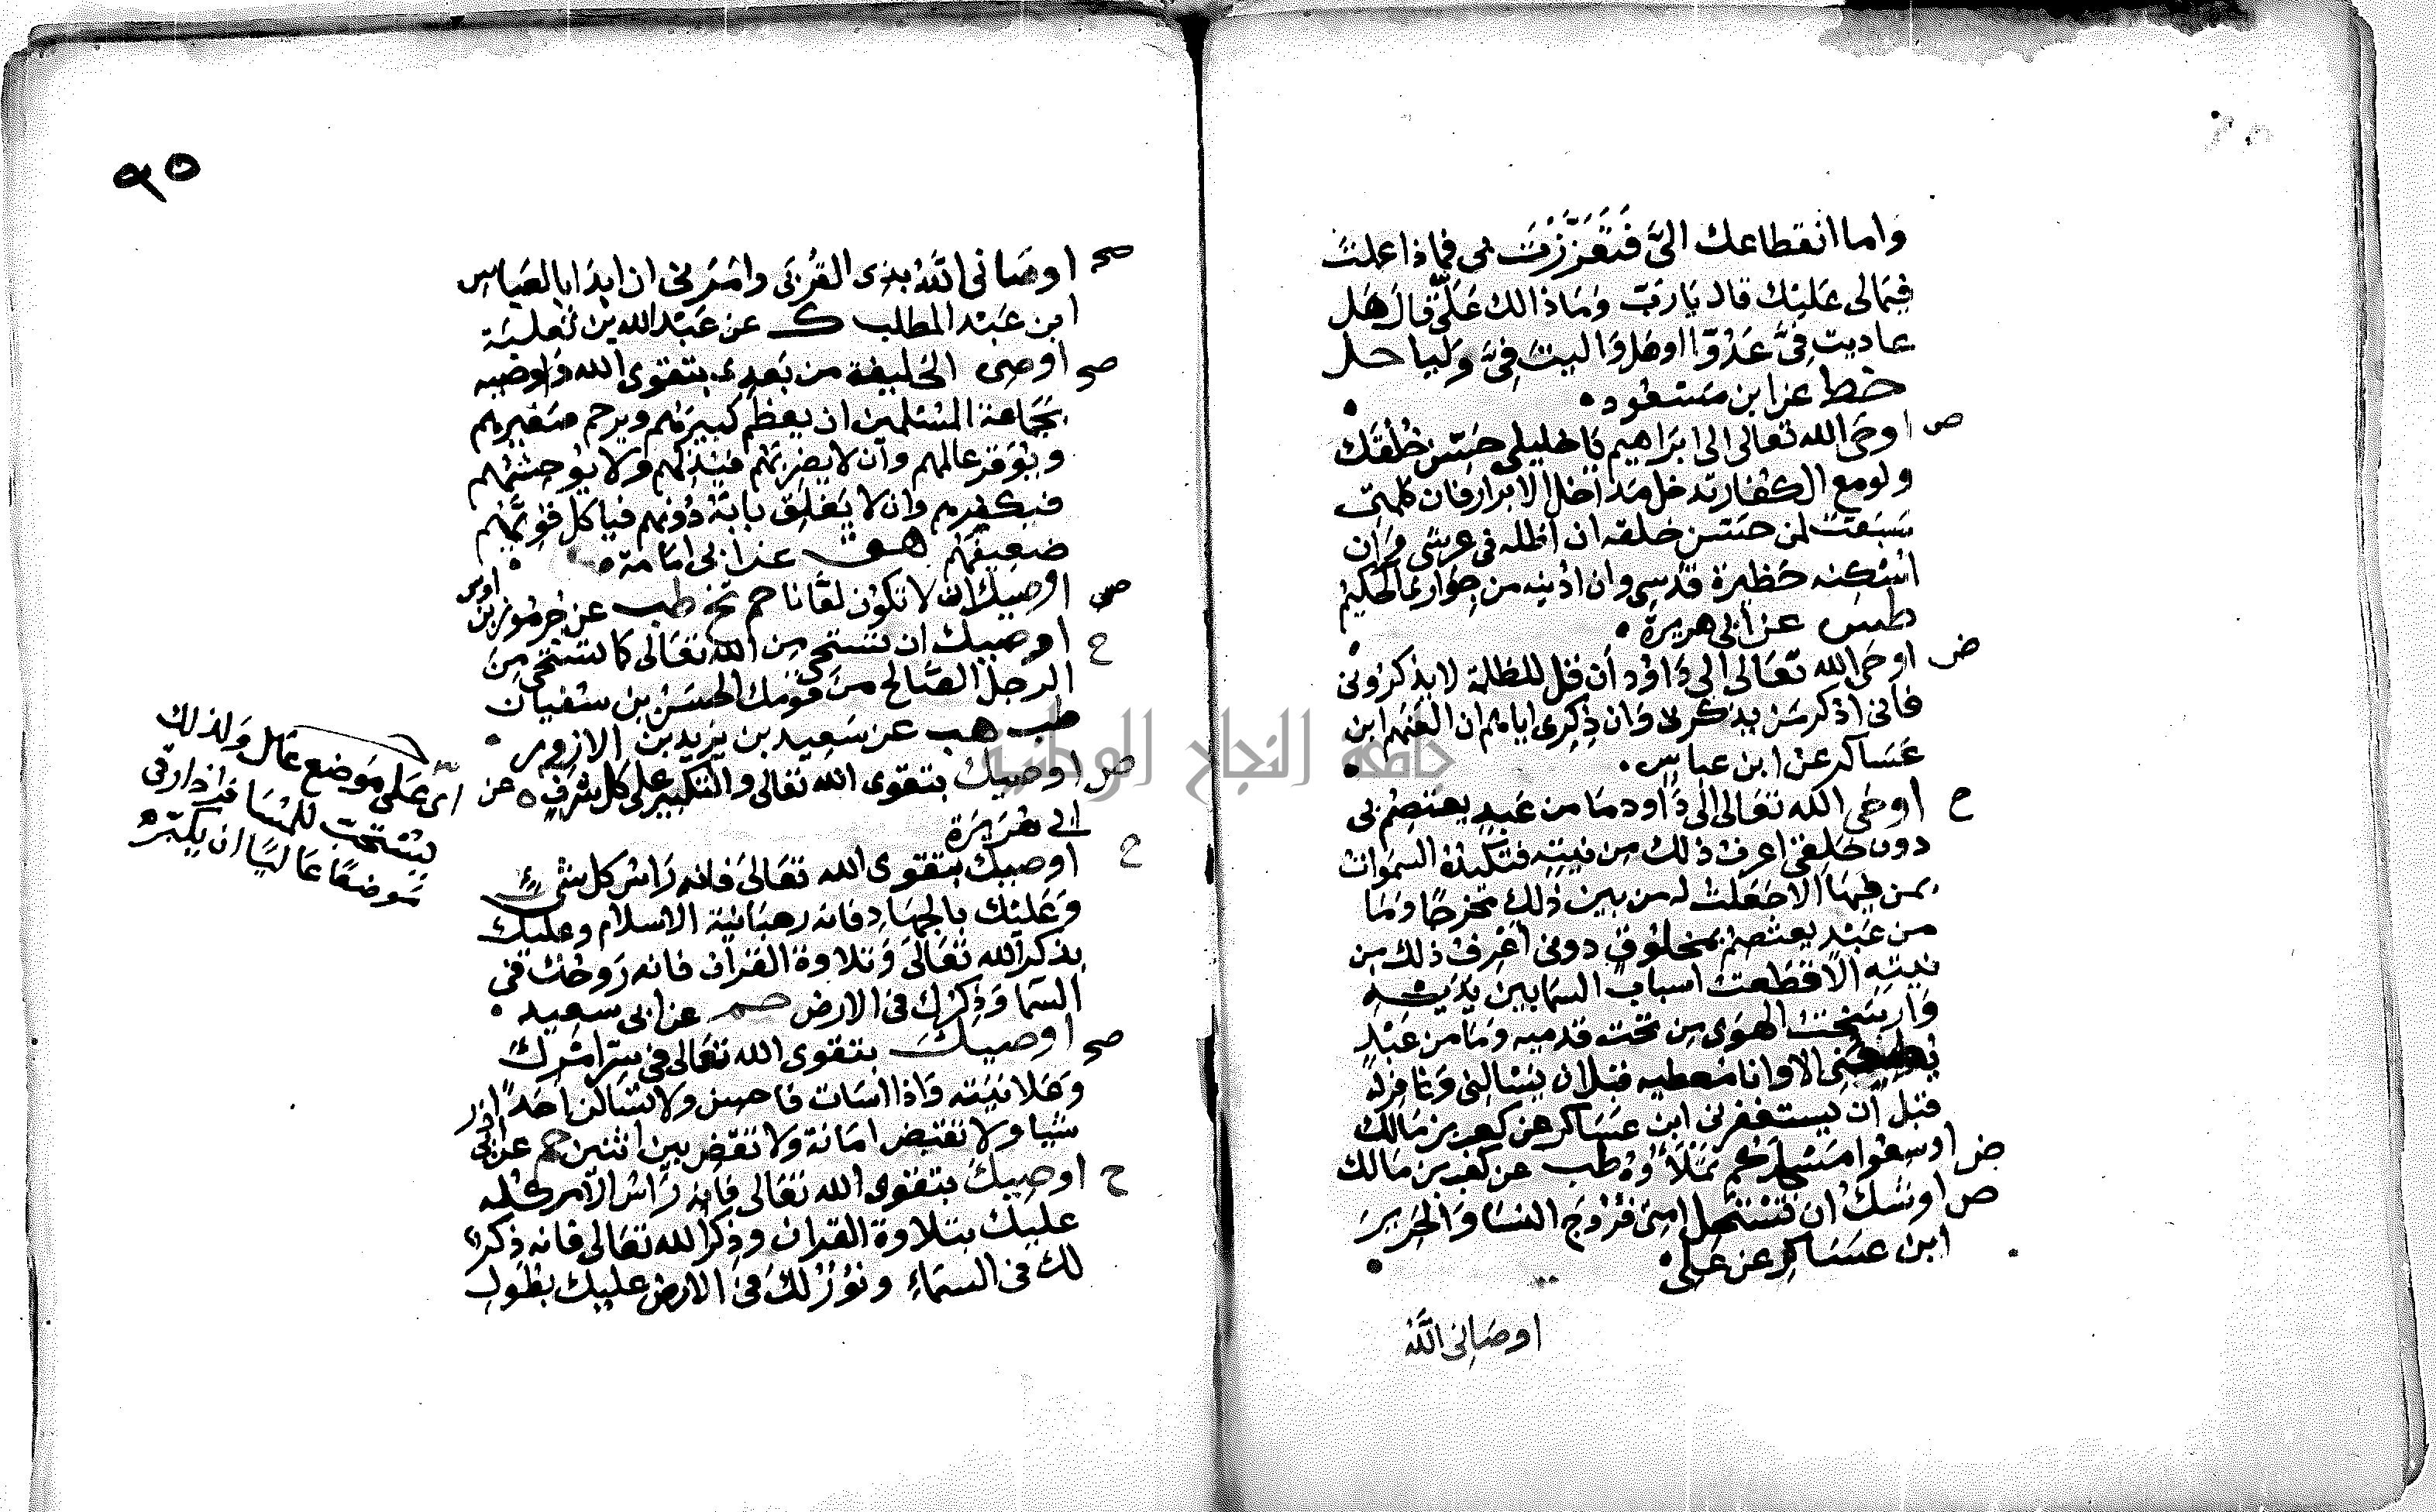 واما انقطاعك الىَّ فَتَعَزَّزْتَ بى فماذا عملت
فيمالى عليك قال يا ربّ وماذا لك عَلَىَّ قال هَل
عاديت فىَّ عَدُوّا او هل واليت فِىَّ وليا حل
خط عن ابن مسعود
ص اوحى الله تعالى الى ابراهيم يا خليلى حسّن خُلُقَك
ولو مع الكفار تدخل مداخل الابرار فان كلمتى
سبقت لمن حسن خلقه ان اظله فى عرشى وان
اسكنه حظيرة قدسى وان ادنيه من جوارى الحكيم
طس عن ابى هريرة
ض اوحى الله تعالى الى داؤد أن قل للظلمة لا يذكرونى
فانى اذكر من يذكرنى وان ذكرى اياهم ان العنهم ابن
عساكر عن ابن عباس
ح اوحى الله تعالى الى داود ما من عبد يعتصم بى
دون خلقى اعرف ذلك من نيته فتكيده السموات
بمن فيها الا جعلت له من بين ذلك مخرجا وما
من عبد يعتصم بمخلوق دونى أعرف ذلك من
نيته الا قطعت اسباب السما بين يديه
وارسخت الهوى من تحت قدميه وما من عبد
يطيعنى الا وانا معطيه قبل ان يسالنى وغافر له
قبل ان يستغفرنى ابن عساكر عن كعب بن مالك
ض اوسعوا مسجدكم تملأوه طب عن كعب بن مالك
ص اوشك ان تستحل امتى فروج النسا والحرير
ابن عساكر عن على
اوصانى الله
٩٥
صح اوصانى الله بذى القربى وامرنى ان ابدا بالعباس
ابن عبد المطلب ك عن عبد الله بن ثعلبة
صح اوصى الخليفة من بعدى بتقوى الله واوصيه
بجماعة المسلمين ان يعظم كبيرهم ويرحم صغيرهم
ويوقر عالمهم وان لا يضربهم فيذلهم ولا يوحشهم
فيكفرهم وان لا يغلق بابه دونهم فياكل قويهم
ضعيفهم هق عن ابى امامة
صح اوصيك ان لا تكون لعّانا حم تخ طب عن جرموز بن اوس
ح اوصيك ان تستحى من الله تعالى كما تستحى من
الرجل الصالح من قومك الحسن بن سفيان
طب هب عن سعيد بن يزيد بن الازور
ص اوصيك بتقوى الله تعالى والتكبير على كل شرف ه عن
ابى هريرة
اى على موضع عال ولذلك
يستحب للمسافر اذا رقى
موضعا عاليا ان يكبّر
ح اوصيك بتقوى الله تعالى فانه راس كل شئ
وعليك بالجهاد فانه رهبانية الاسلام وعليك
بذكر الله تعالى وتلاوة القران فانه روحك فى
السما وذكرك فى الارض حم عن ابى سعيد
صح اوصيك بتقوى الله تعالى فى سرّ امرك
وعلانيته واذا اسات فاحسن ولا تسالن احدًا
شيا ولا تقبض امانة ولا تقض بين اثنين حم عن ابى ذر
ح اوصيك بتقوى الله تعالى فانه راس الامر كله
عليك بتلاوة القران وذكر الله تعالى فانه ذكر
لك فى السماء ونور لك فى الارض عليك بطول
جامعة النجاح الوطنية